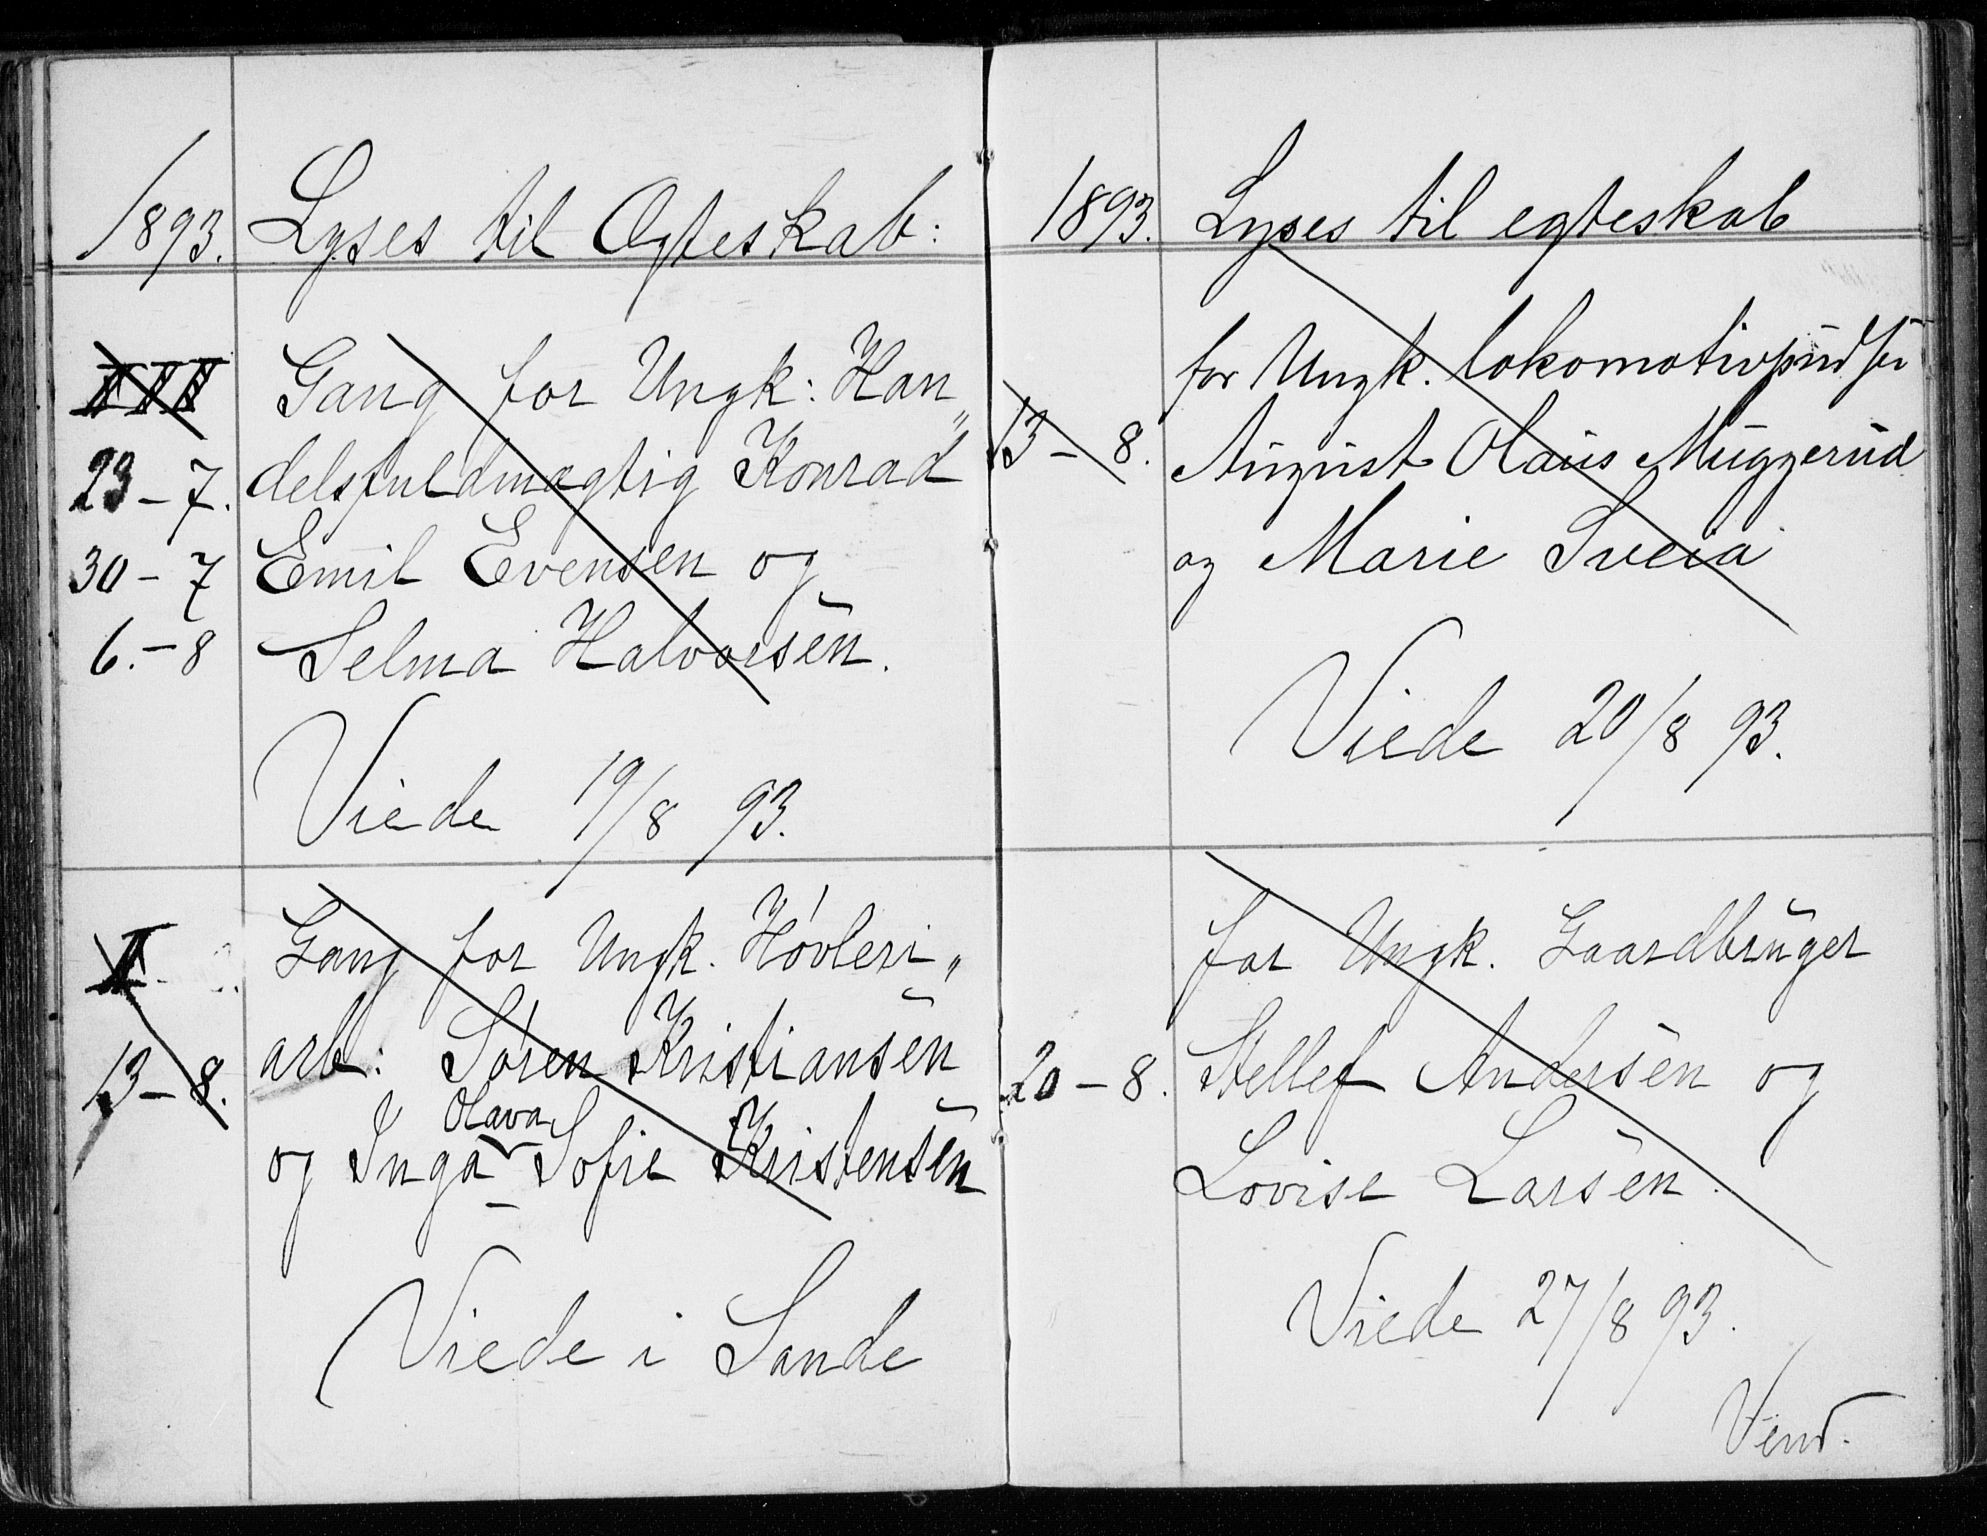 1893. Lyses til Ægteskab:
III Gang for Ungk: Han„
23-7. delsfuldmægtig Konrad
30-7 Emil Evensen og
6.-8 Selma Halvorsen.
Viede 19/8 93.
I Gang for Ungk. Høvleri„
arb: Søren Kristiansen
Olava
13-8. og Inga Sofie Kristensen
Viede i Sande
1893. Lyses til egteskab
for Ungk. lokomotivpudser
13-8. August Olaus Muggerud
og Marie Sveia
Viede 20/8 93.
for Ungk. Gaardbruger
20-8. Stellef Andersen og
Lovise Larsen.
Viede 27/8 93.
Vend.